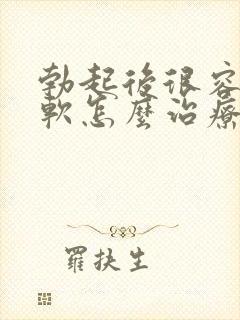 勃起後很容
軟怎麼治療
羅扶生